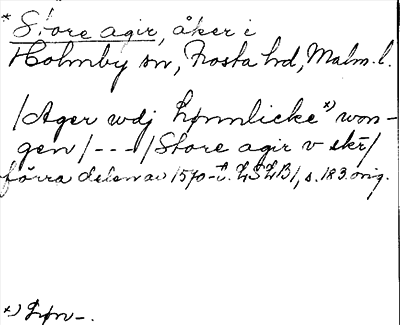 * Store agir, åker i
Holmby sn, Frosta hd, Malm. l.
/Ager wdj Lønnlicke x) won-
gen/ - - - /Store agir v skr̄/
förra delen av 1570-t. LSLB1, s. 183. orig.
x) Løn-.